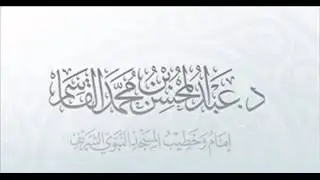 د. عبد المحسن بن محمد القاسم
إمام وخطيب المسجد النبوي الشريف